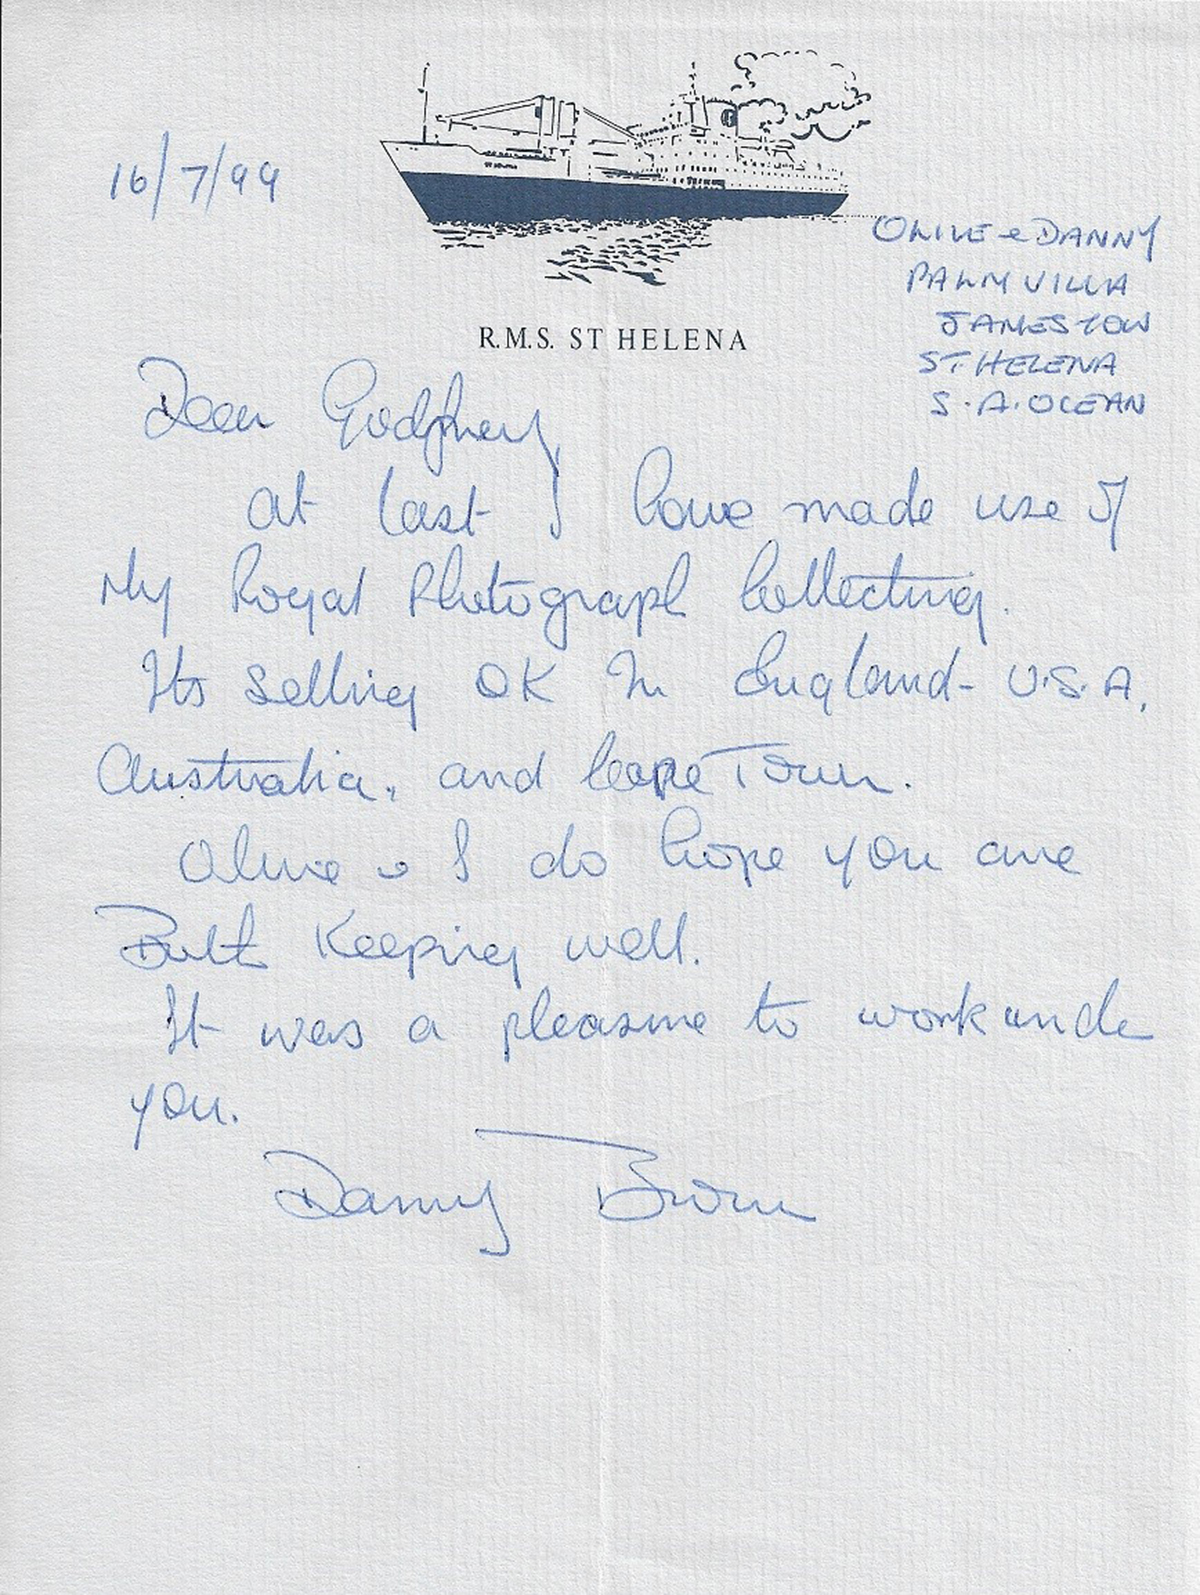 16/7/99
OLIVE & DANNY
PALM VILLA
JAMESTOW
ST. HELENA
S.A. OCEAN
R.M.S. ST HELENA
Dear Godfrey,
at last I have made use of
My Royal Photograph Collecting.
Its selling OK In England - U.S.A,
Australia, and Cape Town.
Olive & I do hope you are
Both Keeping well.
It was a pleasure to work unde
you.
Danny Brown